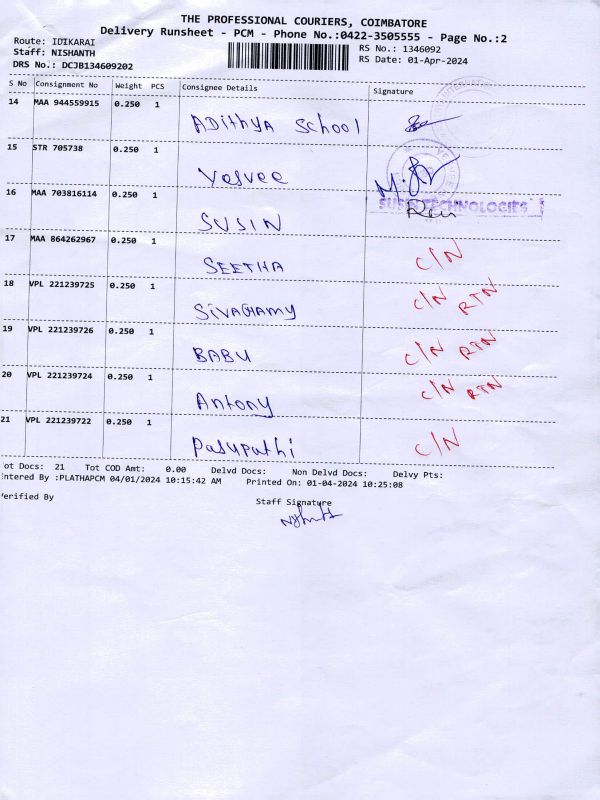 THE PROFESSIONAL COURIERS, COIMBATORE
Delivery Runsheet - PCM - Phone No.:0422-3505555 - Page No.:2
Route: IDIKARAI
RS No.: 1346092
Staff: NISHANTH
RS Date: 01-Apr-2024
DRS No.: DCJB134609202
S No Consignment No Weight PCS Consignee Details Signature
14 MAA 944559915 0.250 1
ADithyA School
15 STR 705738 0.250 1
Yesvee
16 MAA 703816114 0.250 1
SUSIN
TECHNOLOGIES
17 MAA 864262967 0.250 1
SEETHA C/N
18 VPL 221239725 0.250 1
SivAGAmy C/N RTN
19 VPL 221239726 0.250 1
BABU C/N RTN
20 VPL 221239724 0.250 1
Antony C/N RTN
21 VPL 221239722 0.250 1
Pasupathi C/N
ot Docs: 21 Tot COD Amt: 0.00 Delvd Docs: Non Delvd Docs: Delvy Pts:
ntered By :PLATHAPCM 04/01/2024 10:15:42 AM Printed On: 01-04-2024 10:25:08
erified By
Staff Signature